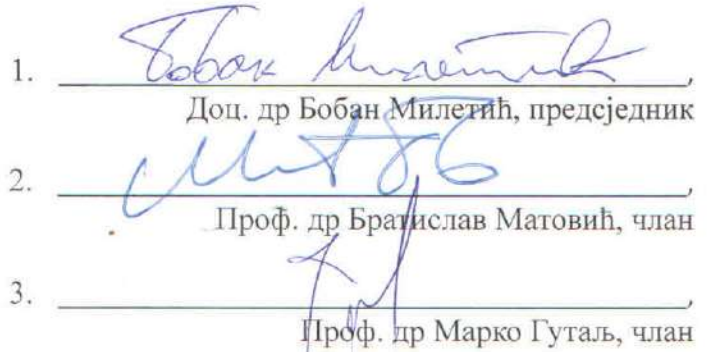 Бобан Милетић
1. ,
Доц. др Бобан Милетић, предсједник
2. ,
Проф. др Братислав Матовић, члан
3. ,
Проф. др Марко Гутаљ, члан